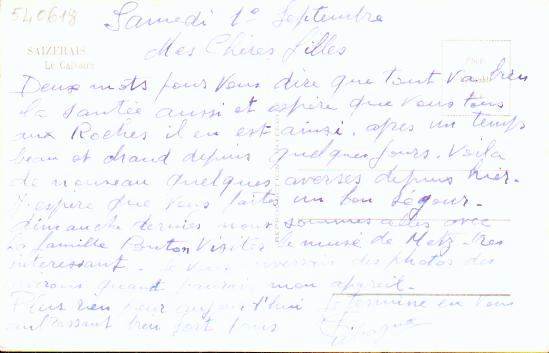 540618
Samedi 1e Septembre
SAIZERAIS
Le Calvaire
Mes Chères filles
Deux mots pour vous dire que tout va bien
la santée aussi et espère que vous tous
aux Roches il en est ainsi. apres un temps
beau et chaud depuis quelques jours. Voila
de nouveau quelques averses depuis hier.
J'espère que vous faites un bon séjour.
dimanche dernier nous sommes allés avec
la famille visiter le musé de Metz. tres
interessant. Je vous des photos des
quand mon appareil.
Plus rien pour aujourd'hui Je termine en vous
embrassant bien fort tous